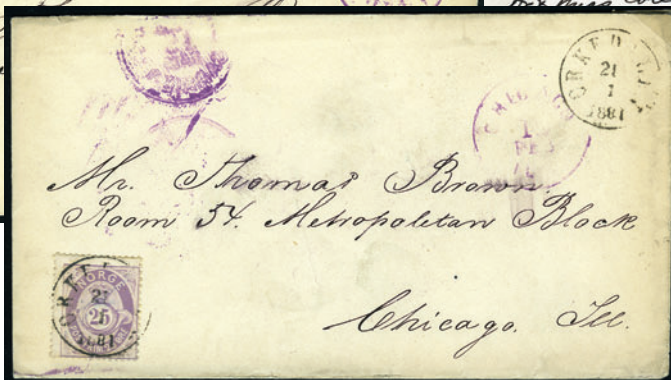 21
1
1881
CHICAGO
1
FEB
Mr. Thomas Brown.
Room 54. Metropolitan Block
Chicago. Ill.
NORGE
25
21
1
1881